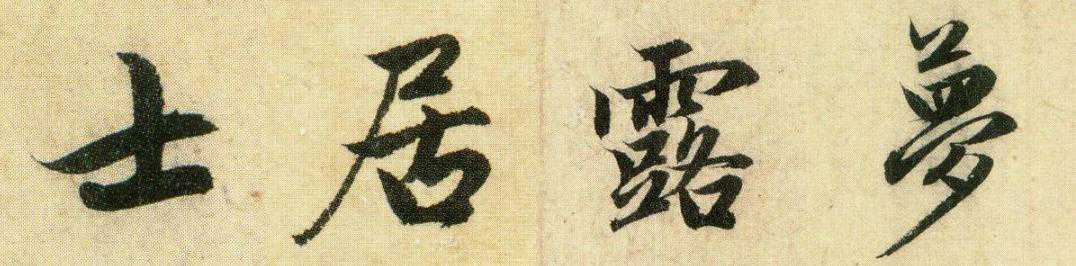 夢露居士